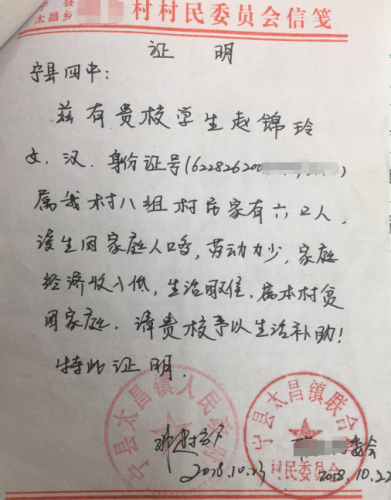 宁县
太昌乡 村村民委员会信笺
证 明
宁县四中：
兹有贵校学生赵锦玲
女、汉、身份证号(622826200
属我村八组村民家有六口人，
该生因家庭人口多，劳动力少，家庭
经济收入低，生活困难，属本村贫
困家庭，请贵校予以生活补助！
特此证明.
宁县太昌镇人民政府
宁县太昌镇联合
村民委员会
2018.10.23
2018.10.22